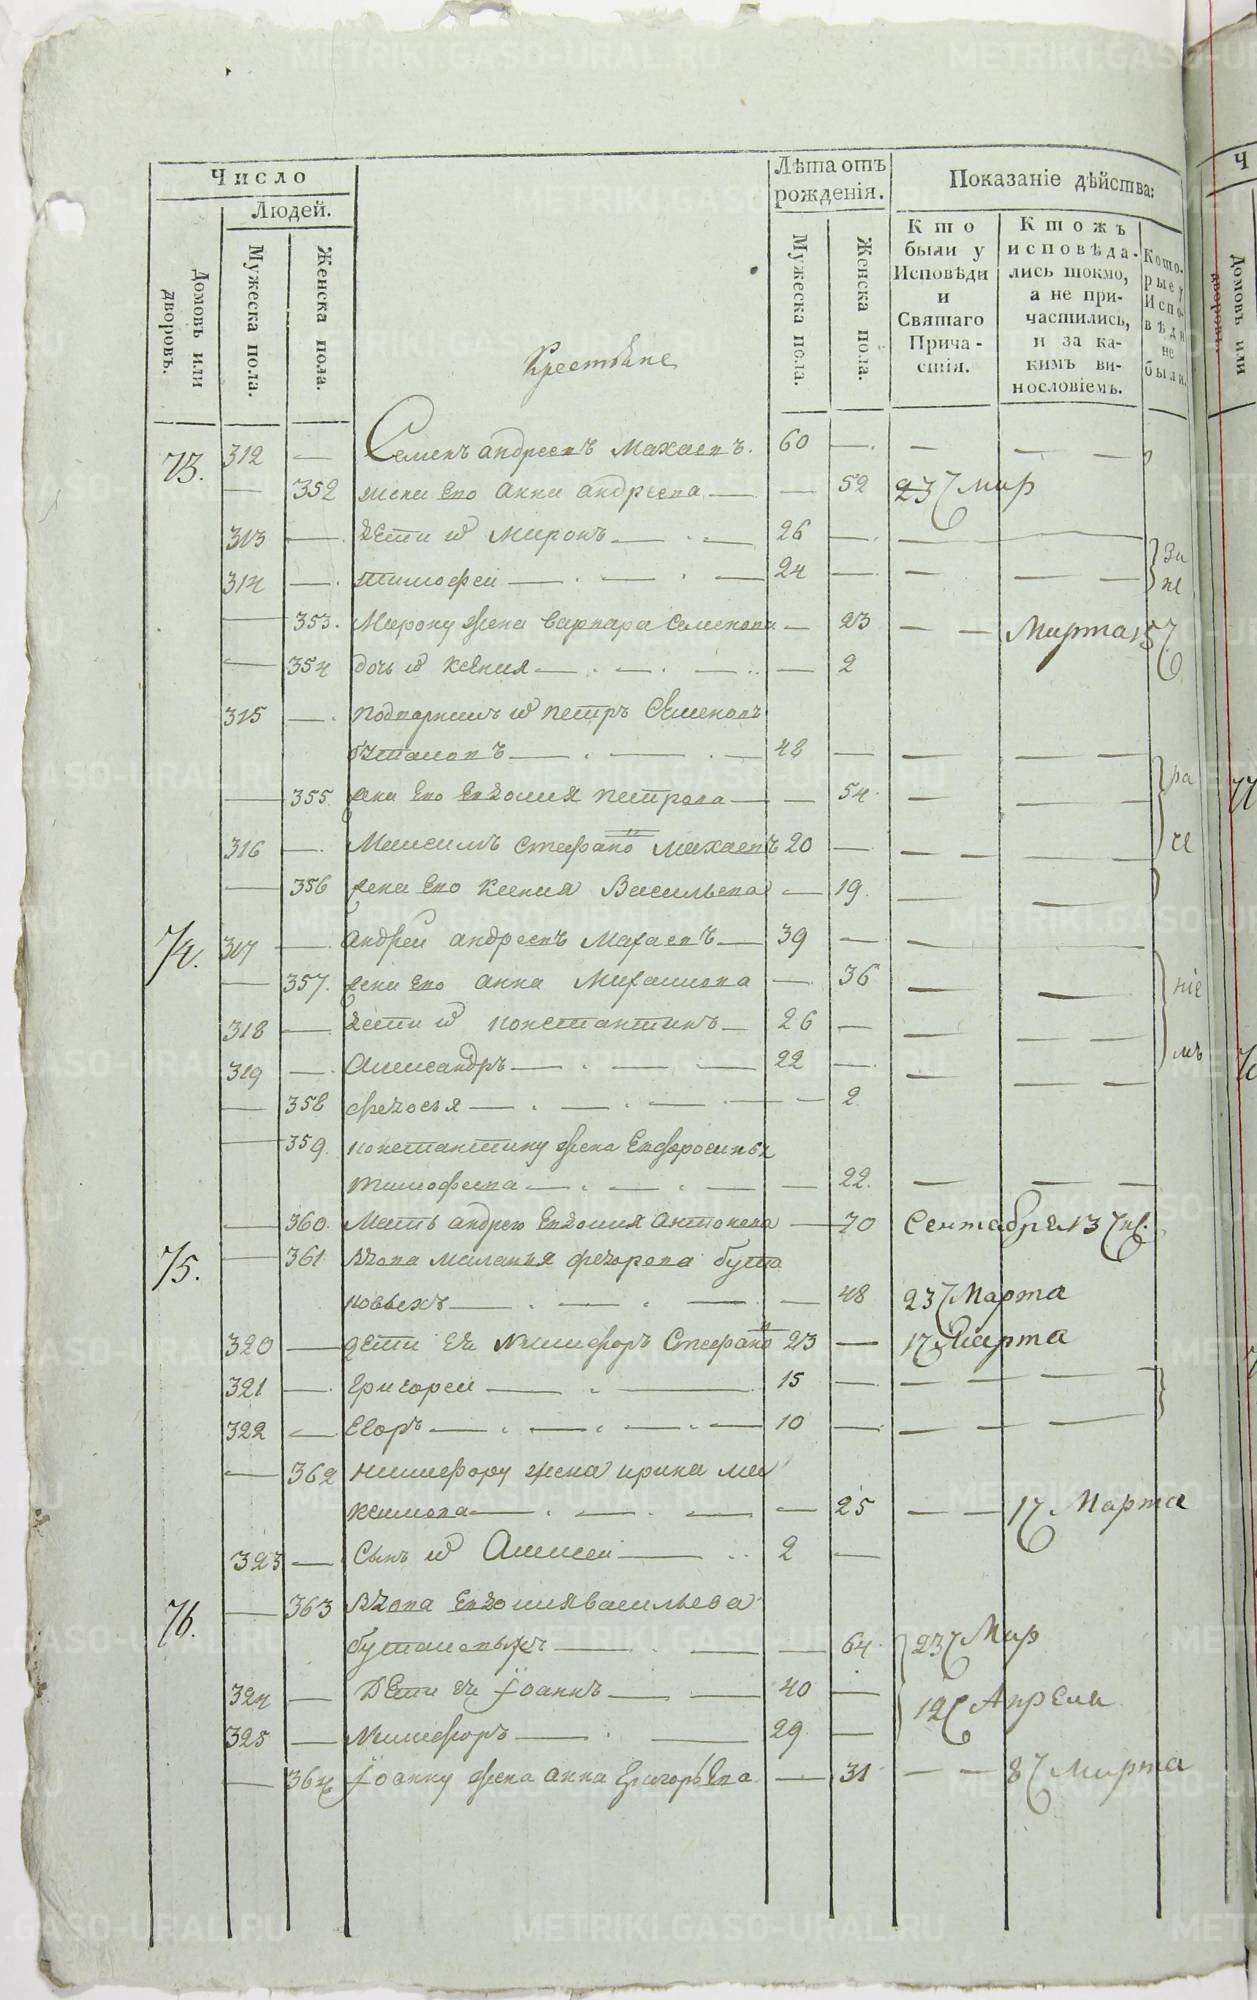 Число
Людей.
Домовъ или дворовъ.
Мужеска пола.
Женска пола.
Крестьяне
Лѣта отъ рожденія.
Мужеска пола.
Женска пола.
Показаніе дѣйства:
Кто были у Исповѣди и Святаго Причастія.
Ктожъ исповѣдались токмо, а не причастились, и за какимъ винословіемъ.
Которые у Исповѣди не были.
73. 312 — Семенъ андреевъ Махаевъ. 60 —
— 352 жена Его Анна андреева — 52 23 Мар
313 — Дети и Миронъ — 26 —
314 — тимофей — 24 —
353. Мирону жена варвара Семенова — 23 — Марта 15
— 354 дочь и ксения — 2
315 — подворникъ и петръ Семеновъ
48 —
— 355 жена Его Евдокия петрова — 54
316 — Максимъ Стефано Махаевъ 20 —
— 356 жена Его Ксения Васильева — 19.
74. 317 — Андрей андреевъ Махаевъ — 39 —
— 357. жена Его анна Михайлова — 36
318 — Дети и константинъ — 26 —
319 — Александръ — 22 —
— 358 федосья — 2
— 359. константину жена Евфросинья
тимофеева — 22.
— 360. Мать андрею Евдокия антонова — 70 Сентября 13
75. — 361 Вдова маланья федорова
48 23 Марта
320 — дети ея Никифоръ Стефано 23 — 17 Марта
321 — Григорей — 15 —
322 — Егоръ — 10 —
— 362 Никифору жена ирина ма
ксимова — 25 — 17 Марта
323 — Сынъ и Алексей — 2 —
76. — 363 Вдова Евдокия васильева
64 23 Мар
324 — Дети ея Iоаннъ — 40 — 12 Апреля
325 — Никифоръ — 29 —
— 364 Iоанну жена анна Григорьева — 31 — 8 Марта